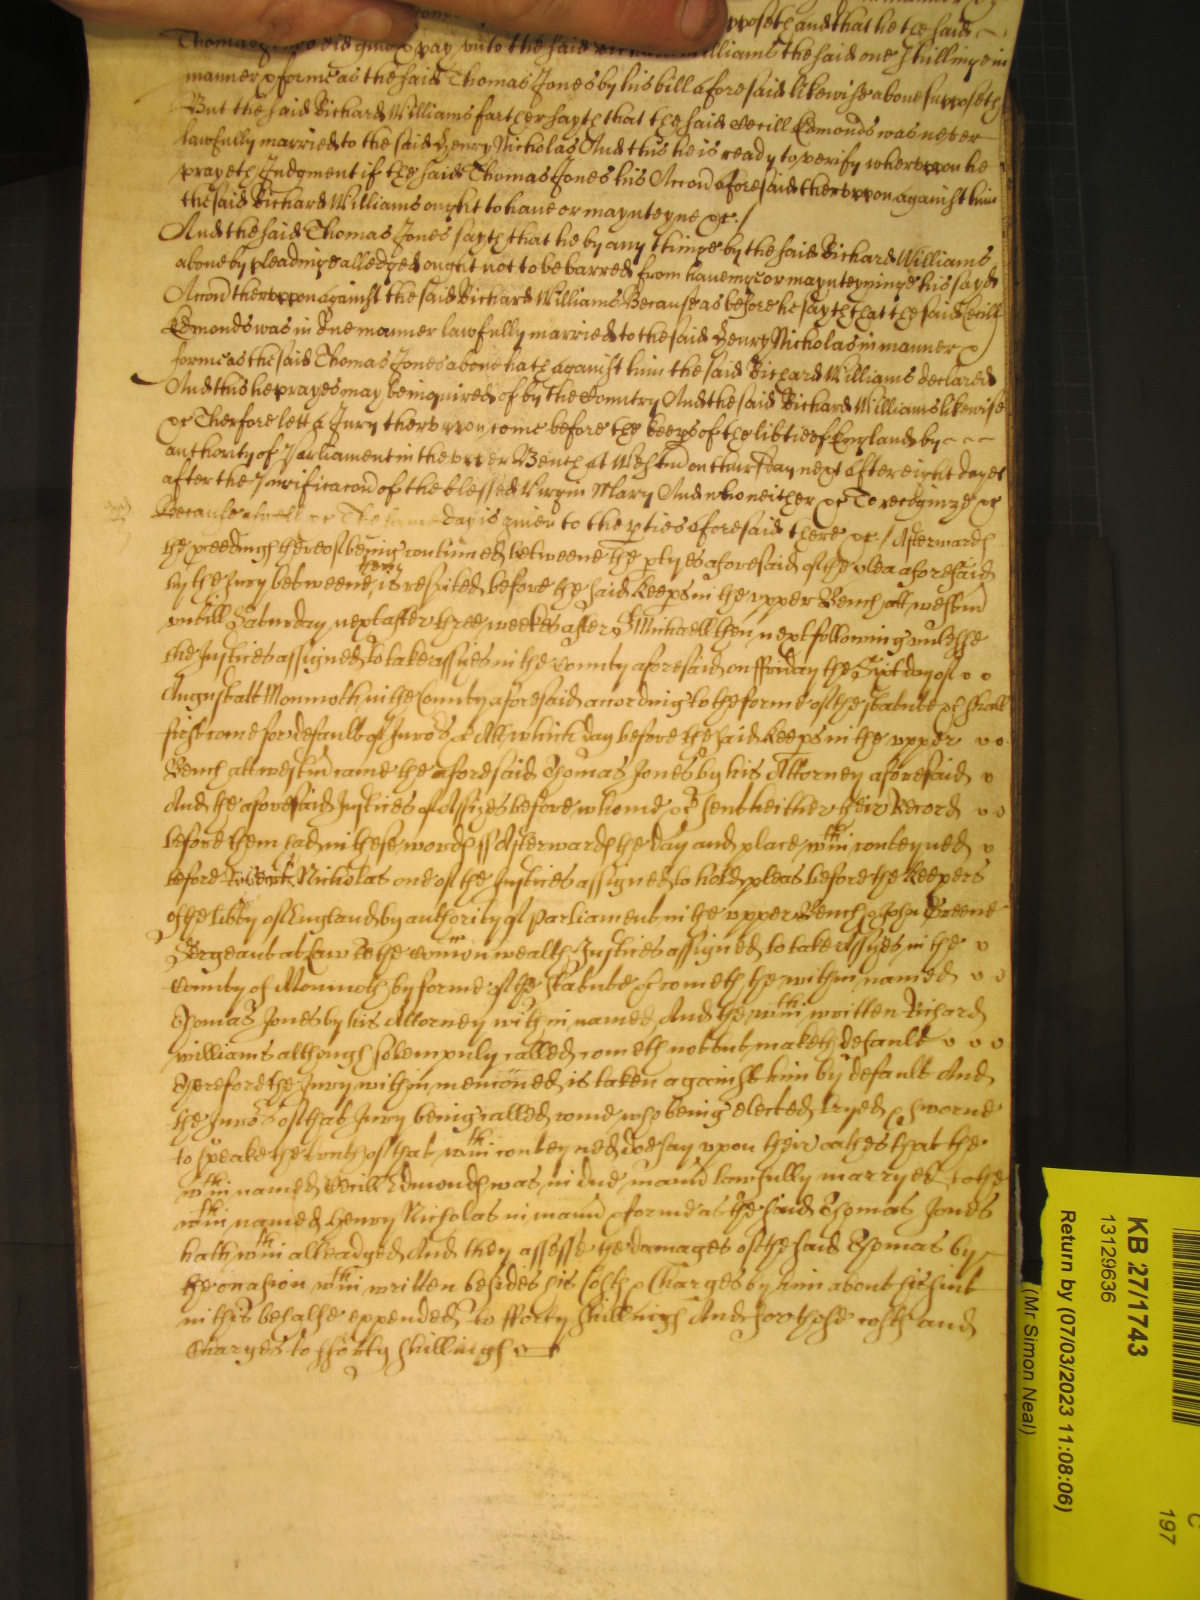 pposeth and that he the said
Thomas did pay unto the said Williams the said one Shillinge in
manner & forme as the said Thomas Jones by his bill aforesaid likewise above supposeth
But the said Richard Williams farther sayth that the said Cecill Edmonds was never
lawfully married to the said Henry Nicholas And this he is ready to verify whereuppon he
prayeth Judgment if the said Thomas Jones his Accon aforesaid thereuppon against him
the said Richard Williams ought to have or maynteyne &c. /
And the said Thomas Jones sayth that he by any thinge by the said Richard Williams
above by pleadinge alledged ought not to be barred from haveinge or maynteyninge his sayd
Accon thereuppon against the said Richard Williams Because as before he sayth that the said Cecill
Edmonds was in due manner lawfully married to the said Henry Nicholas in manner &
forme as the said Thomas Jones above hath against him the said Richard Williams declared
And this he prayes may be inquired of by the Country And the said Richard Williams likewise
&c Therefore lett a Jury thereuppon come before the keeps of the libtie of England by
authority of Parliament in the upper Bench at Westm on thursday next after eight dayes
after the Purificacon of the blessed Virgin Mary And who neither &c To recognize &c
Because aswell &c The same day is given to the pties aforesaid there &c / Afterwards
the pceedings thereof being continued betweene the ptyes aforesaid of the plea aforesaid
by the Jury betweene them is respited before the said Keeps in the upper Bench att Westm
untill Saturday next after three weekes after St Michaell then next following unlesse
the Justices assigned to take assizes in the County aforesaid on ffriday the Sixt day of
August att Monmoth in the County aforesaid according to the forme of the statute &c shall
first come for default of Juro &c Att which day before the said Keeps in the upper
Bench att westm came the aforesaid Thomas Jones by his Attorney aforesaid
And the aforesaid Justices of Assizes before whome &c sent heither their Record
before them had in these words ss Afterwards the day and place wthin conteyned
before Robert Nicholas one of the Justices assigned to hold pleas before the Keepers
of the libty of England by authority of Parliament in the upper Bench & John Greene
Sergeant at Law to the Comon wealth Justices assigned to take assizes in the
County of Monmoth by forme of the statute &c cometh the within named
Thomas Jones by his Attorney within named And the wthin written Richard
Williams although solempnly called cometh not but maketh default
Therefore the Jury within mencioned is taken against him by default And
the Juro of that Jury being called come who being elected tryed & sworne
to speake the truth of that wthin conteyned doe say upon their oathes that the
wthin named Cecill Edmonds was in due mann lawfully marryed to the
wthin named Henry Nicholas in mann & forme as the said Thomas Jones
hath wthin alleadged And they assesse the damages of the said Thomas by
the occasion wthin written besides his Costs & Charges by him about his suit
in this behalfe expended to fforty shillings And for those costs and
Charges to fforty shillings
KB 27/1743
13129636
Return by (07/03/2023 11:08:06)
(Mr Simon Neal)
C
197